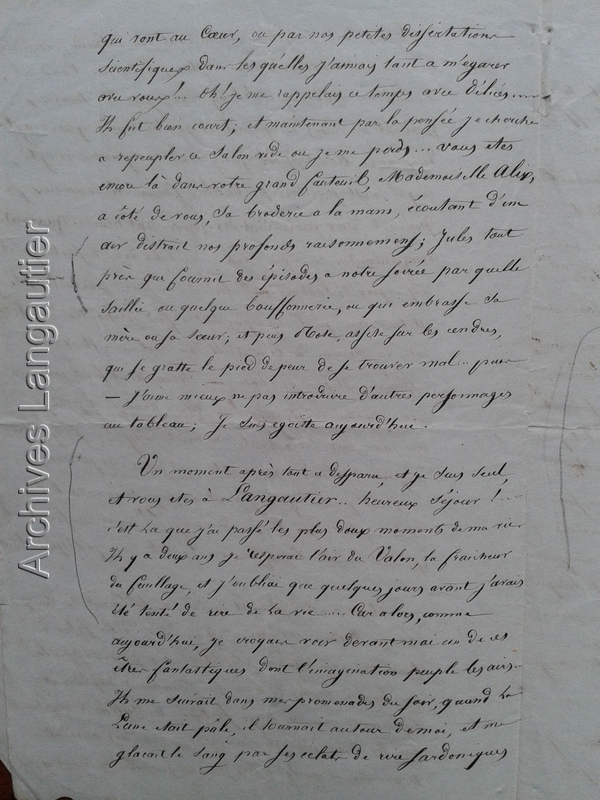 qui vont au Cœur, ou par nos petites dissertations
scientifiques dans lesquelles j'aimais tant a m'egarer
avec vous!.. Oh! je me rappelais ce temps avec délices....
Il fut bien court; et maintenant par la pensée je cherche
a repeupler ce Salon vide ou je me perds... Vous etes
encore là dans votre grand fauteuil, Mademoiselle Alix,
a côté de vous, sa broderie a la main, écoutant d'un
air distrait nos profonds raisonnements; Jules tout
près qui fournit des épisodes a notre soirée par quelle
saillie ou quelque bouffonnerie, ou qui embrasse sa
mère ou sa sœur; et puis Rose, assise sur les cendres,
qui se gratte le pied de peur de se trouver mal... puis
— J'aime mieux ne pas introduire d'autres personnages
au tableau; Je suis egoïste aujourd'hui.
Un moment après tout a disparu et je suis seul,
et vous etes à Langautier... heureux séjour!...
c'est la que j'ai passé les plus doux moments de ma vie
Il y a deux ans je respirai l'air du Valon, la fraicheur
du feuillage, et j'oubliai que quelques jours avant j'avais
été tenté de rire de la vie.... Car alors, comme
aujourd'hui, je croyais voir devant moi un de ces
êtres fantastiques dont l'imagination peuple les airs..
Il me suivait dans mes promenades du soir, quand la
Lune etait pâle, il tournait autour de moi, et me
glacait le sang par ses eclats de rire sardoniques
Archives Langautier